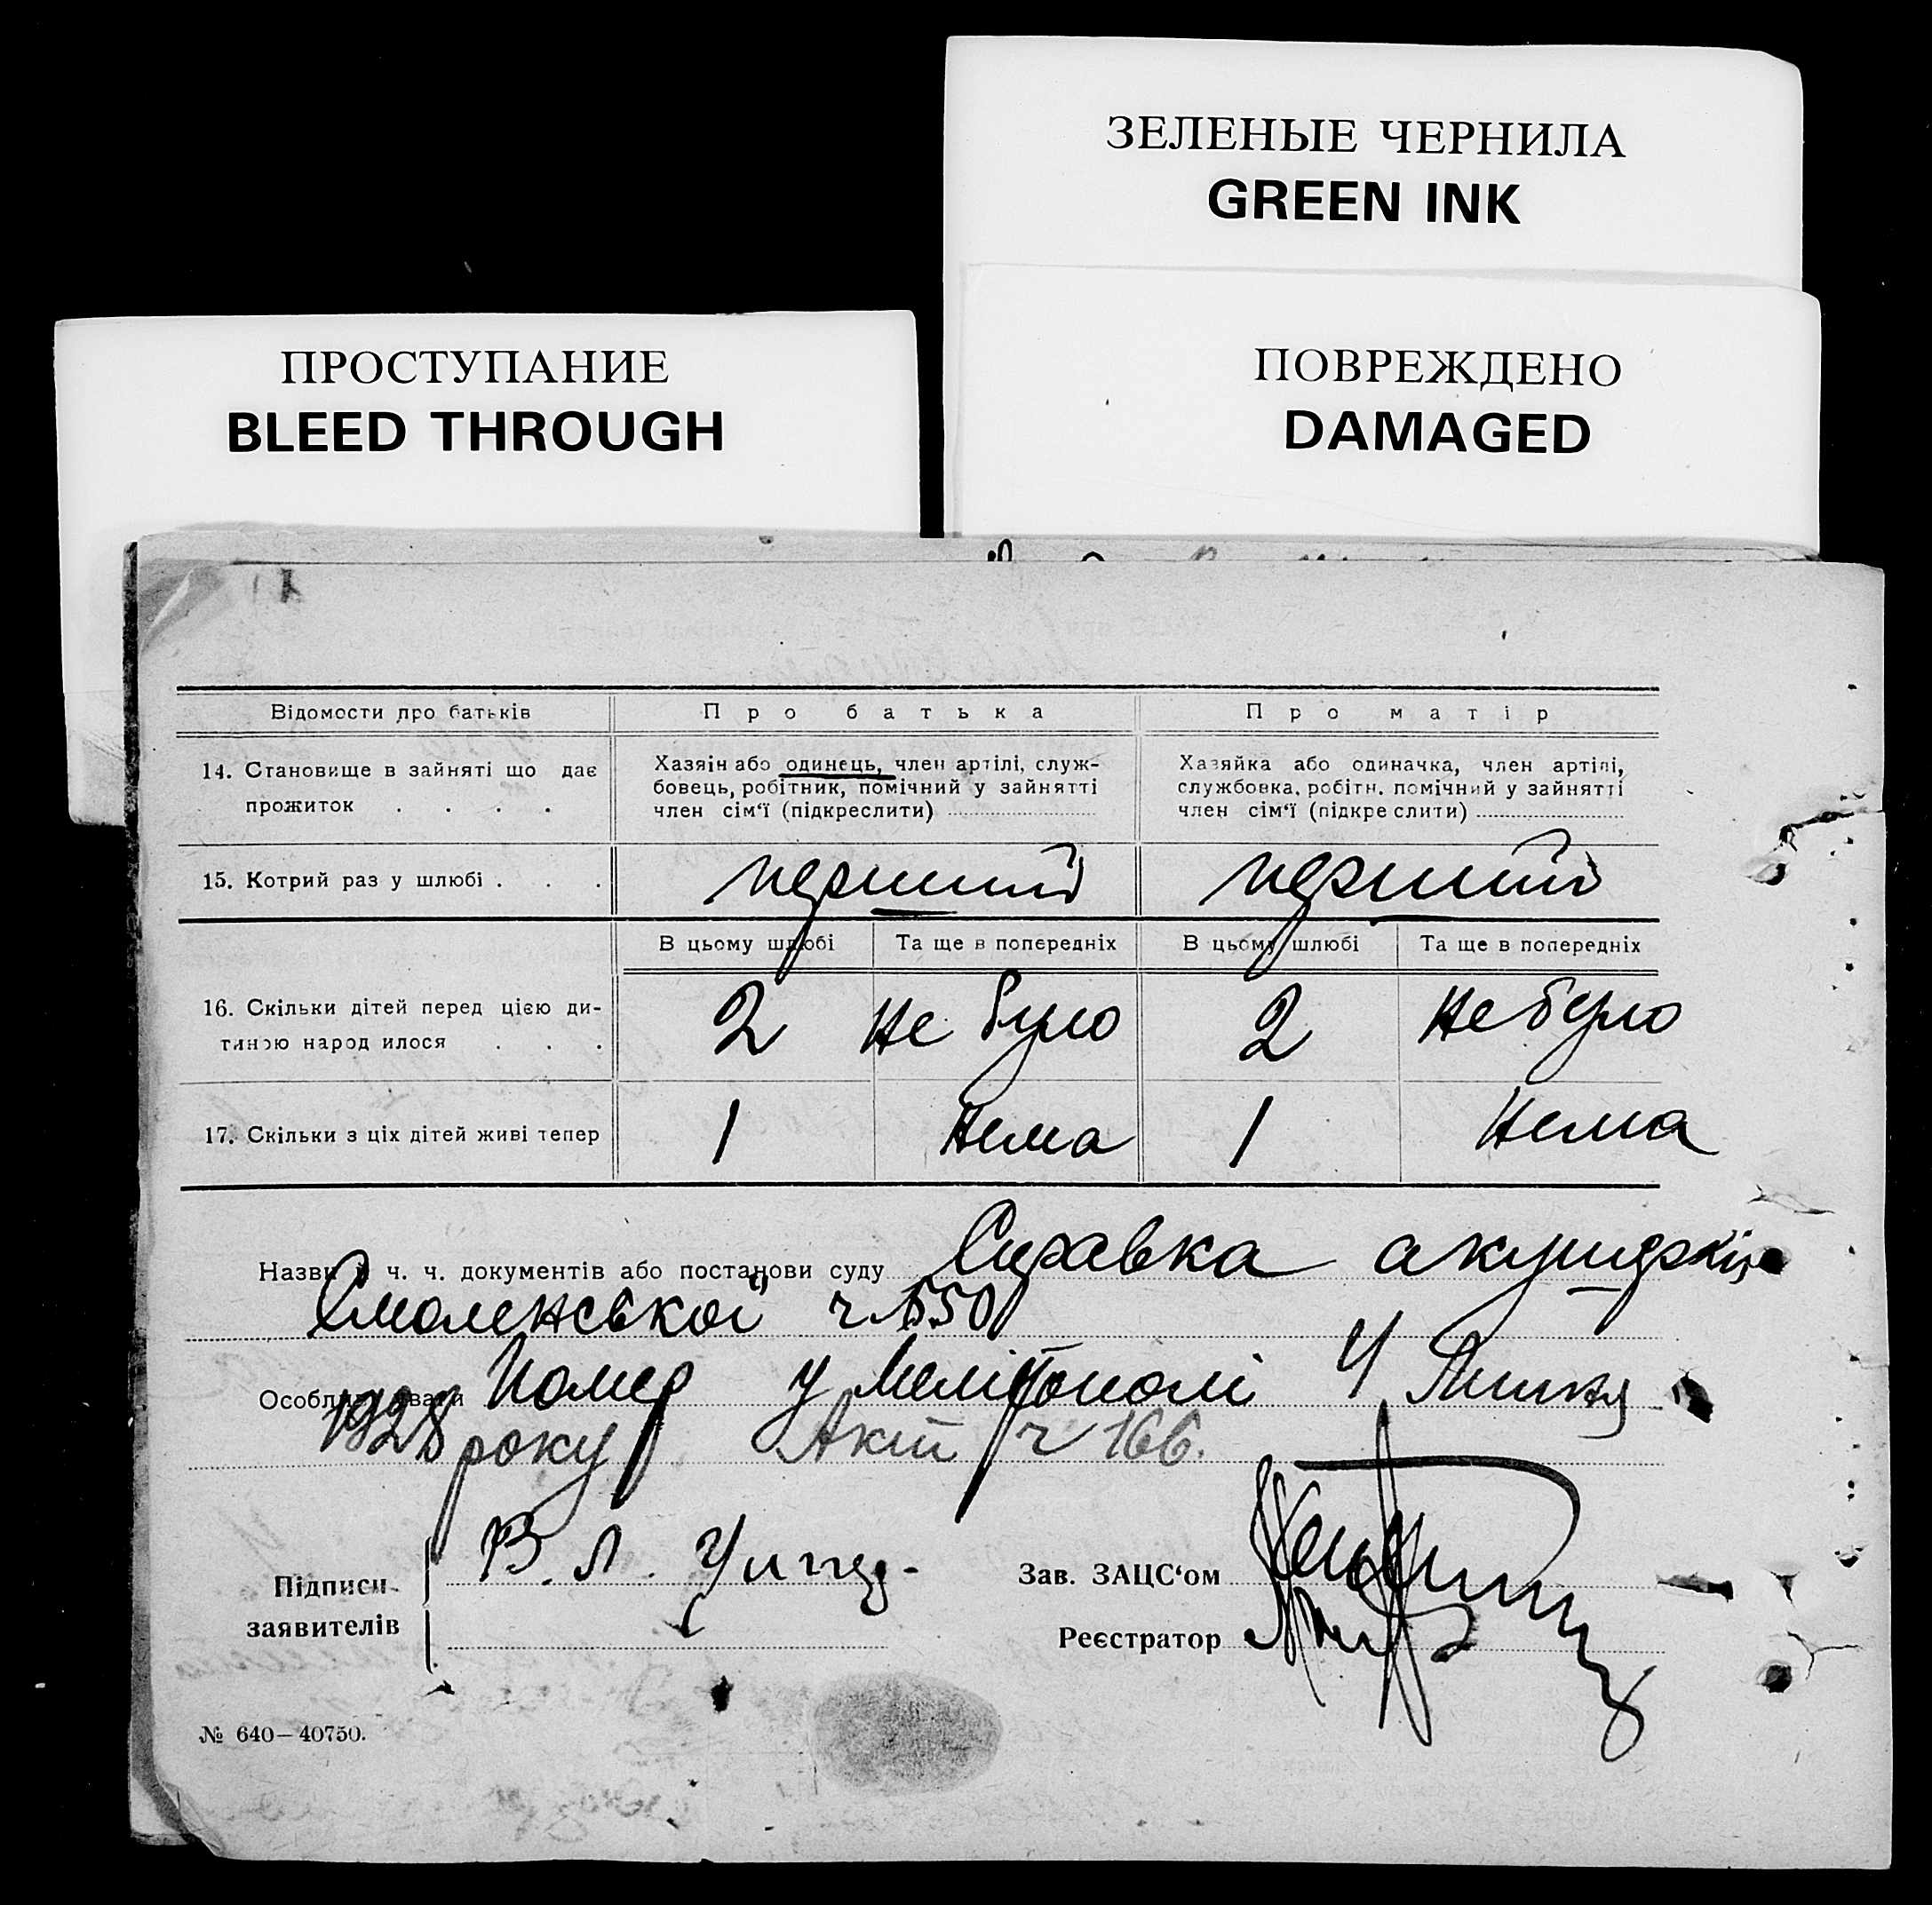 ЗЕЛЕНЫЕ ЧЕРНИЛА
GREEN INK
ПРОСТУПАНИЕ
BLEED THROUGH
ПОВРЕЖДЕНО
DAMAGED
Відомости про батьків
Про батька
Про матір
14. Становище в зайняті що дає
прожиток . . . .
Хазяін або одинець, член артілі, служ-
бовець, робітник, помічний у зайнятті
член сім‘ї (підкреслити)
Хазяйка або одиначка, член артілі,
службовка, робітн. помічний у зайнятті
член сім‘ї (підкреслити)
15. Котрий раз у шлюбі . . .
перший
перший
В цьому шлюбі
Та ще в попередніх
В цьому шлюбі
Та ще в попередніх
16. Скільки дітей перед цією ди-
тиною народилося . . .
2
не було
2
не було
17. Скільки з ціх дітей живі тепер
1
нема
1
нема
Назви й ч. ч. документів або постанови суду Справка акушерки
Смоленської ч 550
Особливі уваги Помер у Мелітополі 4 Липня
1928 року Акт ч 166.
Підписи
заявителів
В. Л.
Зав. ЗАЦС‘ом
Реєстратор
№ 640—40750.